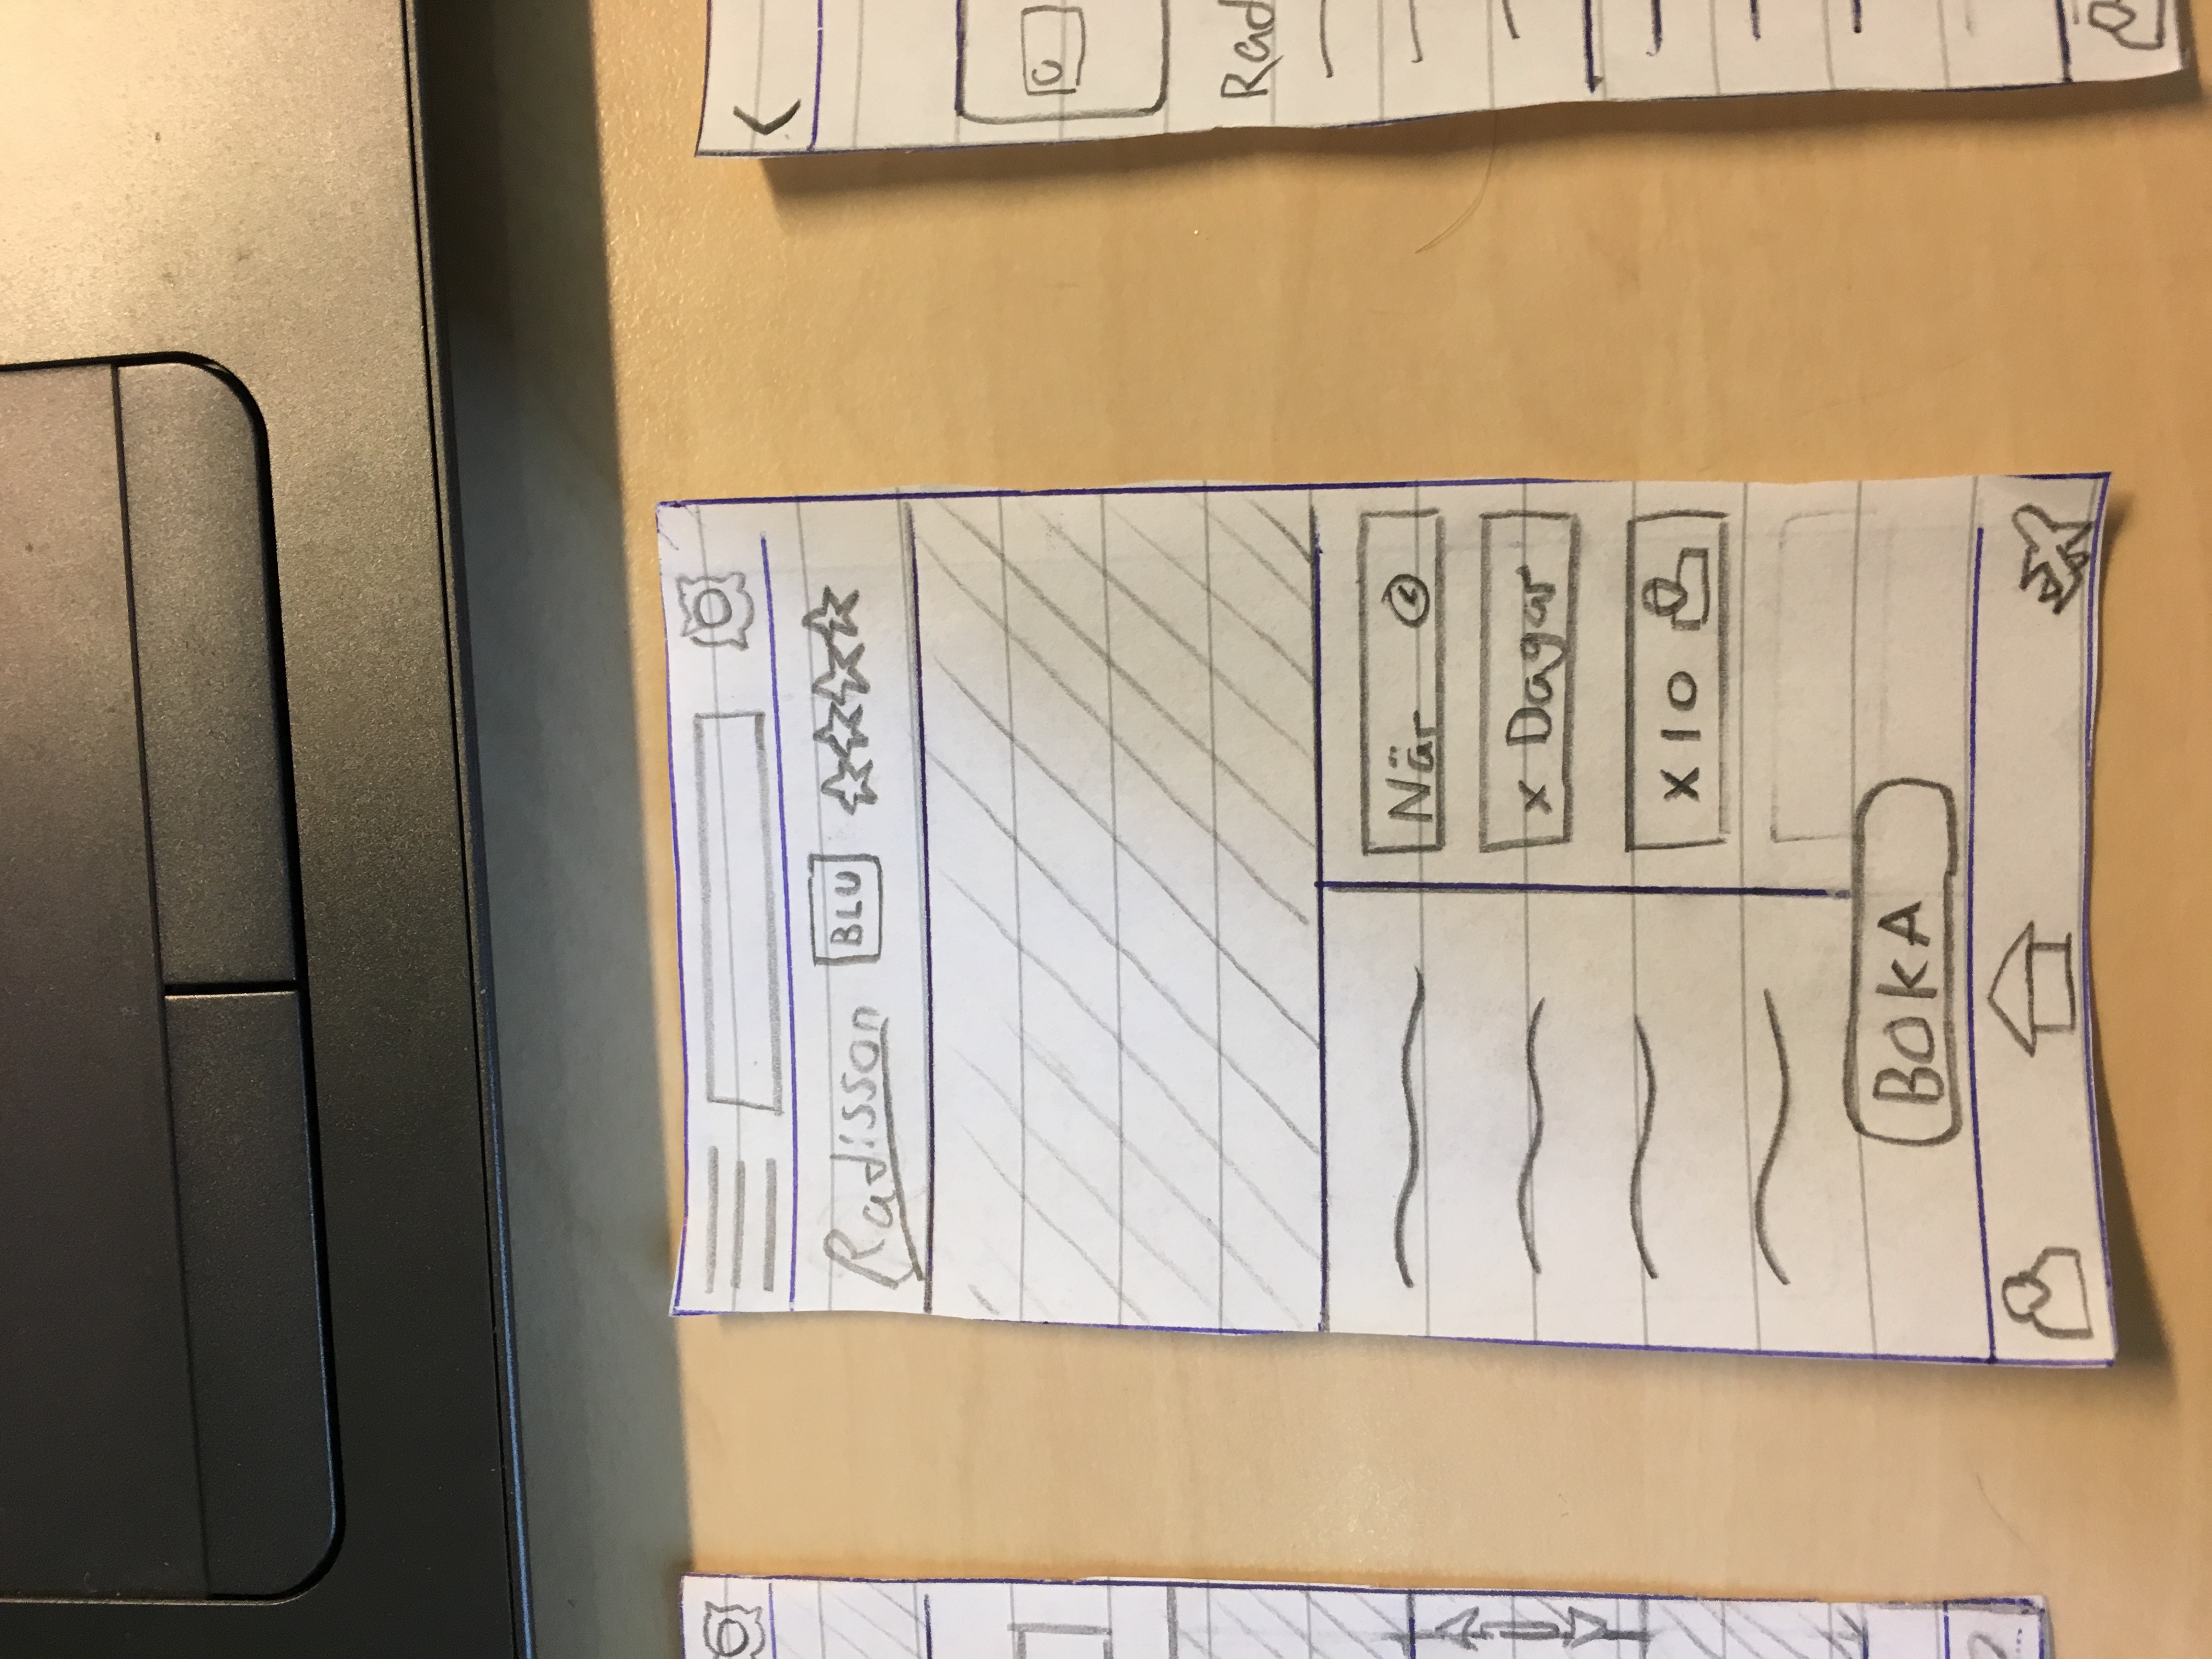 Radisson BLU
När
x Dagar
x10
BOKA
C
Rad